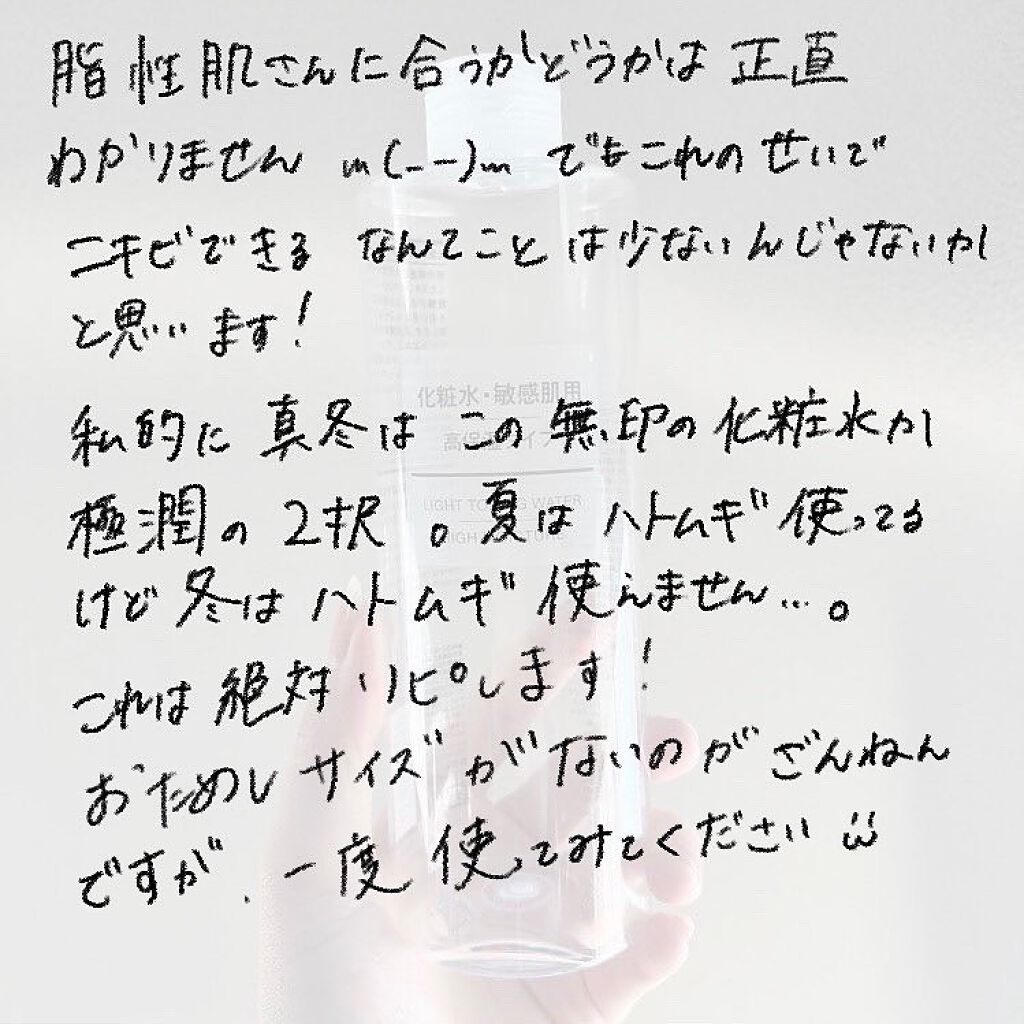 脂性肌さんに合うかどうかは正直
わかりません m(_ _)m でもこれのせいで
ニキビできる なんてことは少ないんじゃないか
と思います！
私的に真冬はこの無印の化粧水か
極潤の2択。夏はハトムギ使ってる
けど冬はハトムギ使えません…。
これは絶対リピします！
おためしサイズがないのがざんねん
ですが、一度使ってみてください ü
化粧水・敏感肌用
LIGHT TONING WATER